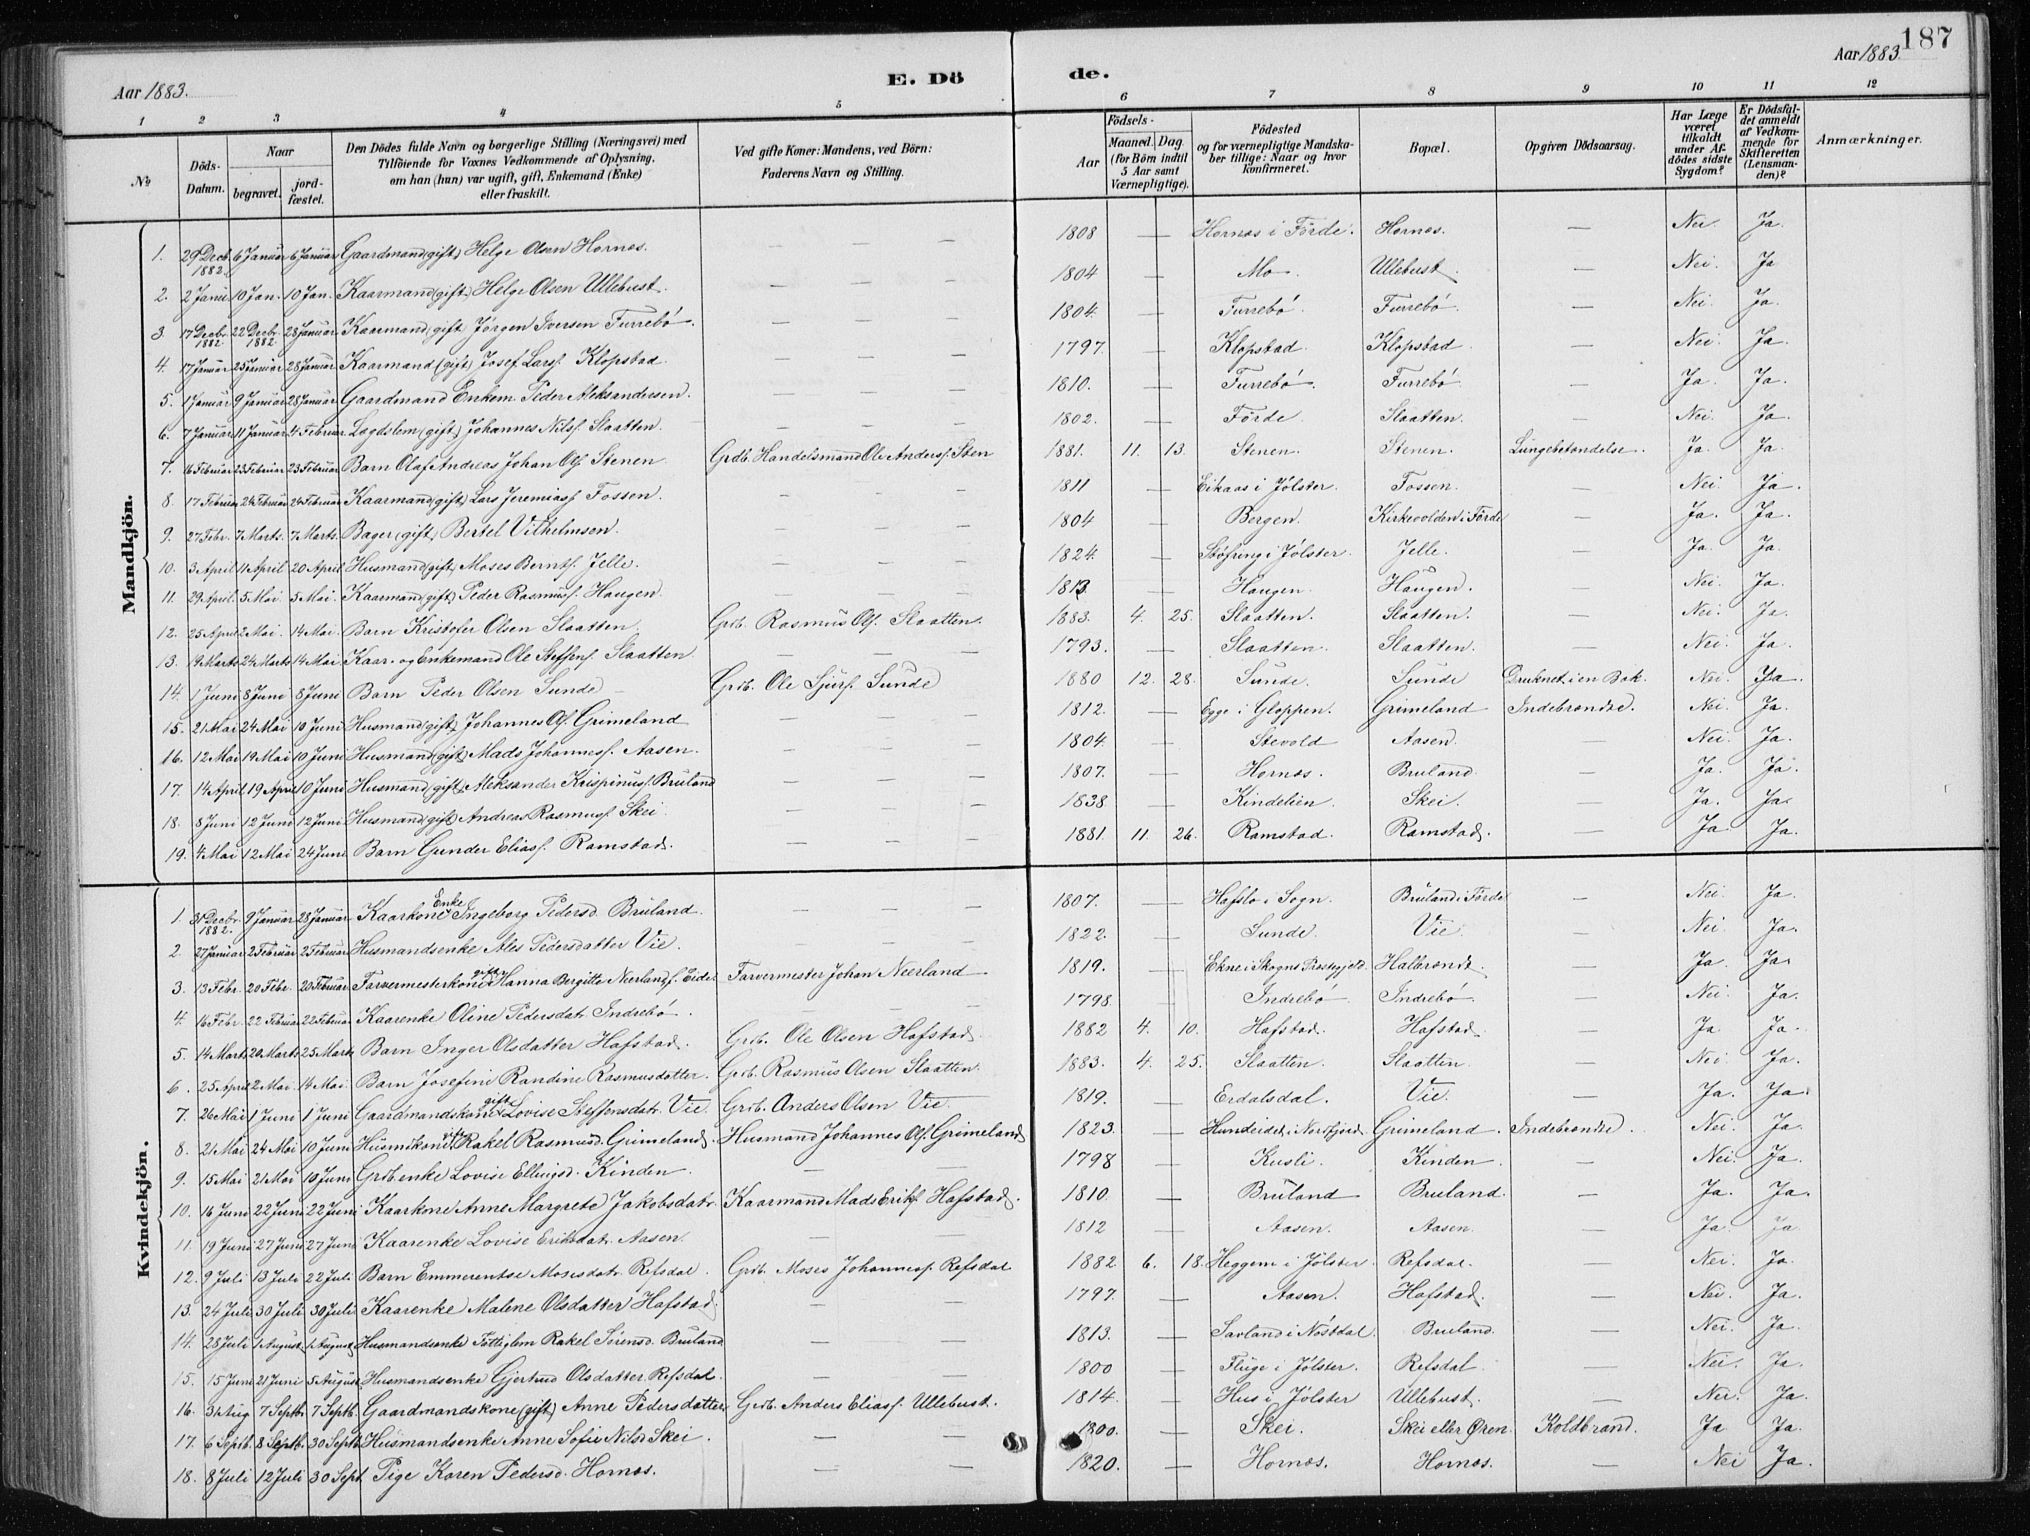 187
Aar 1883.
E. Döde.
Aar 1883
1 2 3 4 5 6 7 8 9 10 11 12
No
Döds-Datum.
Naar
begravet.
jordfæstet.
Den Dödes fulde Navn og borgerlige Stilling (Næringsvei) med Tilföiende for Voxnes Vedkommende af Oplysning, om han (hun) var ugift, gift, Enkemand (Enke) eller fraskilt.
Ved gifte Koner: Mandens, ved Börn: Faderens Navn og Stilling.
Födsels-
Aar
Maaned. Dag.
(for Börn indtil 5 Aar samt Værnepligtige).
Födested og for værnepligtige Mandskaber tillige: Naar og hvor konfirmeret.
Bopæl.
Opgiven Dödsaarsag.
Har Læge været tilkaldt under Afdödes sidste Sygdom?
Er Dödsfaldet anmeldt af Vedkommende for Skifteretten (Lensmanden)?
Anmærkninger.
Mandkjön.
1. 29 Decb. 1882 6 Januar 6 Januar Gaardmand (gift) Helge Olsen Hornes. — — — 1808 — Hornes i Förde. Hornes. Nei. Ja.
2. 2 Janu. 10 Jan. 10 Jan. Kaarmand (gift) Helge Olsen Ullebust. — — — 1804 — Mo. Ullebust. — Nei. Ja
3. 17 Decbr. 1882 22 Decbr. 1882 28 Januar Kaarmand (gift) Jørgen Iversen Furrebö. — — — 1804. — Furrebö. Furrebö. — Nei. Ja.
4. 17 Januar 25 Januar 28 Januar Kaarmand (gift) Josef Lars. Klopstad — — — 1797. — Klopstad. Klopstad — Nei. Ja.
5. 1 Januar 9 Januar 28 Januar Gaardmand Enkem. Peder Aleksandersen. — — — 1810. — Furrebö. Furrebö. — Ja. Ja.
6. 7 Januar 11 Januar 4 Februar Lægdslem (gift) Johannes Nils. Slaatten. — — — 1802. — Förde. Slaatten. — Nei. Ja
7. 16 Februar 23 Februar 23 Februar Barn Olaf Andreas Johan Ols. Stenen Grdb. Handelsmand Ole Anders. Sten 1881. 11. 13. Stenen. Stenen. Lungebetændelse. Ja. Ja.
8. 17 Februar 24 Februar 24 Februar Kaarmand (gift) Lars Jeremias. Fossen. — — — 1811 — Eikaas i Jølster. Fossen. — Nei. Ja.
9. 27 Febr. 7 Marts. 7 Marts. Bager (gift) Bertel Vilhelmsen. — — — 1804 — Bergen. Kirkevolden i Förde — Ja. Ja.
10. 3 April 11 April 20 April Husmand (gift) Moses Bernts. Jelle. — — — 1824. — Støfring i Jølster. Jelle. — Ja. Ja.
11. 29 April. 5 Mai 5 Mai. Kaarmand (gift) Peder Rasmus. Haugen. — — — 1813. — Haugen. Haugen. — Nei. Ja.
12. 25 April 2 Mai. 14 Mai. Barn Kristofer Olsen Slaatten. Grdb. Rasmus Ols. Slaatten. 1883. 4. 25. Slaatten. Slaatten. — Nei. Ja.
13. 19 Marts 24 Marts 14 Mai Kaar- og Enkemand Ole Steffens. Slaatten. — — — 1793. — Slaatten. Slaatten. — Nei. Ja.
14. 1 Juni 8 Juni 8 Juni Barn Peder Olsen Sunde — Grdb. Ole Sjurs. Sunde 1880 12. 28. Sunde. Sunde Druknet i en Bæk. Nei. Ja.
15. 21 Mai 24 Mai 10 Juni Husmand (gift) Johannes Ols. Grimeland — — — 1812. — Egge i Gloppen. Grimeland Indebrændte. Nei. Ja.
16. 12 Mai 19 Mai 10 Juni Husmand (gift) Mads Johannes. Aasen. — — — 1804. — Stevold Aasen. — Nei. Ja.
17. 14 April 19 April 10 Juni Husmand (gift) Aleksander Krispinus. Bruland — — — 1807. — Hornes. Bruland. — Ja. Ja.
18. 8 Juni 12 Juni 12 Juni Husmand (gift) Andreas Rasmus. Skei. — — — 1838 — Kindelien. Skei. — Ja. Ja.
19. 4 Mai 12 Mai 24 Juni Barn Gunder Elias. Ramstad. — — — 1881. 11. 26. Ramstad. Ramstad. — Ja Ja.
Kvindekjön.
1. 31 Decbr. 1882. 9 Januar 28 Januar Kaarkone Enke Ingeborg Pedersd. Bruland. — — — 1807. — Hafslo i Sogn. Bruland i Förde — Nei. Ja.
2. 27 Januar 2 Februar 2 Februar Husmandsenke Ales Pedersdatter Vie. — — — 1822. — Sunde. Vie. — Nei. Ja.
3. 13 Febr. 20 Febr. 20 Februar Farvermesterkone gift Hanna Bergitte Neerland, f. Eider Farvermester Johan Neerland — 1819. — Ekne i Skogns Prestegjeld. Halbrendt. — Ja. Ja.
4. 16 Febr. 22 Februar 22 Februar Kaarenke Oline Pedersdatr. Indrebö. — — 1798 — Indrebö. Indrebö. — Nei. Ja.
5. 14 Marts 20 Marts 25 Marts Barn Inger Olsdatter Hafstad. Grdb. Ole Olsen Hafstad. 1882 4. 10. Hafstad. Hafstad. — Ja Ja.
6. 25 April 2 Mai. 14 Mai. Barn Josefine Randine Rasmusdatter. Grdb. Rasmus Olsen Slaatten. 1883. 4. 25. Slaatten. Slaatten. — Nei Ja.
7. 26 Mai 1 Juni 1 Juni Gaardmandskone gift Lovise Steffensdatr. Vie. Grdb. Anders Olsen Vie. 1819. — Erdalsdal. Vie. — Ja. Ja.
8. 21 Mai 24 Mai 10 Juni Husmkone gift Rakel Rasmusd. Grimeland. Husmand Johannes Ols. Grimeland 1823. — Hundeidet i Nordfjord. Grimeland. Indebrændte. Nei. Ja.
9. 15 Mai 21 Mai 10 Juni Grdb. enke Lovise Ellingsd. Kinden. — — 1798 — Kusli. Kinden. — Nei. Ja.
10. 16 Juni 22 Juni 22 Juni Kaarkone Anne Margrete Jakobsdatr. Kaarmand Mads Eriks. Hafstad. 1810. — Bruland Bruland. — Ja. Ja.
11. 19 Juni 27 Juni 27 Juni Kaarenke Lovise Eriksdatr. Aasen. — — 1812 — Aasen. Aasen. — Ja. Ja
12. 9 Juli 13 Juli 22 Juli Barn Emmerentse Mosesdatr. Refsdal. Grdb. Moses Johannes. Refsdal 1882 6. 18. Heggeni i Jølster. Refsdal. — Nei. Ja.
13. 24 Juli 30 Juli 30 Juli Kaarenke Malene Olsdatter Hafstad. — — 1797. — Aasen. Hafstad. — Nei. Ja.
14. 28 Juli 1 August 1 August Husmandsenke Fattiglem Rakel Sörensd. Bruland — — 1813. — Savland i Nöstdal. Bruland. — Nei. Ja.
15. 15 Juni 21 Juni 5 August Husmandsenke Gjertrud Olsdatter Refsdal. — — 1800 — Fluge i Jølster. Refsdal. — Nei. Ja.
16. 31 Aug. 7 Septbr. 7 Septb. Gaardmandskone (gift) Anne Pedersdatter Grdb. Anders Elias. Ullebust. 1814. — Hus i Jølster Ullebust. — Nei. Ja.
17. 6 Septb. 8 Septb. 30 Septb. Husmandsenke Anne Sofie Nilsd. Skei. — — 1800. — Skei. Skei eller Øren. Koldbrand. Ja Ja.
18. 8 Juli 12 Juli 30 Sept. Pige Karen Pedersd. Hornes. — — 1820. — Hornes. Hornes. — Nei Ja.